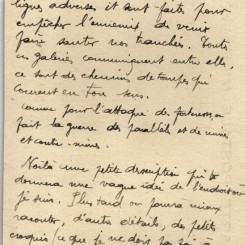 lignes adverses et sont faits pour
empêcher l'ennemi de venir
faire sauter nos tranchées. Toutes
ces galeries communiquent entre elles,
ce sont des chemins de taupe qui
courent en tous sens.
comme pour l'attaque de forteresse on
fait la guerre des parallèles et de mines
et contre-mines.
Voilà une petite description qui te
donnera une vague idée de l'endroit où
je suis. Plus tard on pourra mieux
raconter, d'autres détails, des petits
croquis (ce que je ne dois pas